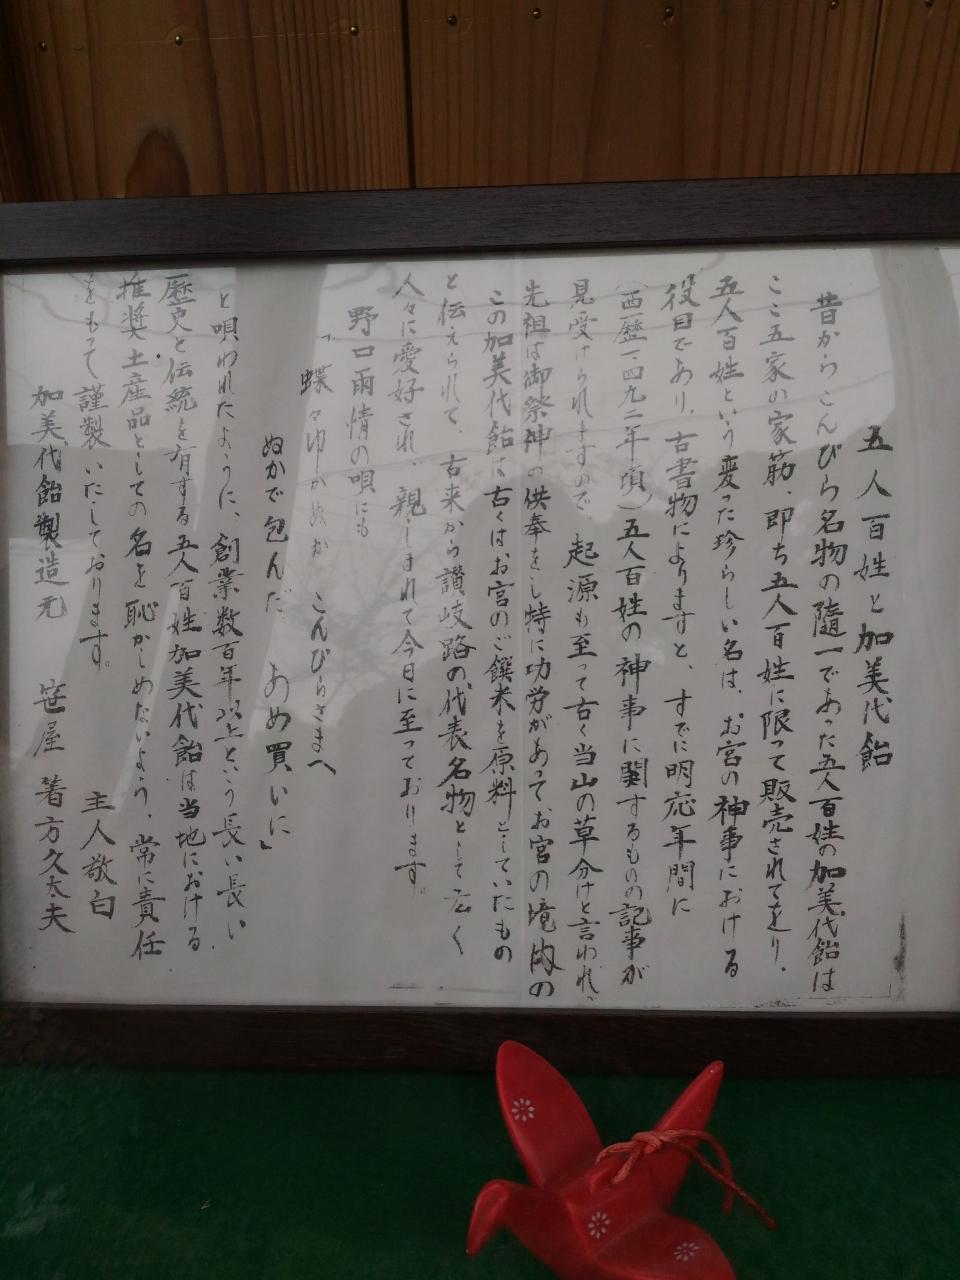 五人百姓と加美代飴
昔からこんぴら名物の随一であった五人百姓の加美代飴は
ここ五家の家筋、即ち五人百姓に限って販売されてをり、
五人百姓という変った珍らしい名は、お宮の神事における
役目であり、古書物によりますと、すでに明応年間に
(西歴一四九二年頃)五人百姓の神事に関するものの記事が
見受けられますので、起源も至って古く当山の草分けと言われ、
先祖は御祭神の供奉をし特に功労があって、お宮の境内の
この加美代飴は古くはお宮のご饌米を原料としていたもの
と伝えられて、古来から讃岐路の代表名物として広く
人々に愛好され、親しまれて今日に至っております。
野口雨情の唄にも
「蝶々ゆかぬか こんぴらさまへ
ぬかで包んだ あめ買いに」
と唄われたように、創業数百年以上という長い長い
歴史と伝統を有する五人百姓加美代飴は当地における
推奨土産品としての名を恥かしめないよう、常に責任
をもって謹製いたしております。
主人敬白
加美代飴製造元 笹屋 箸方久太夫